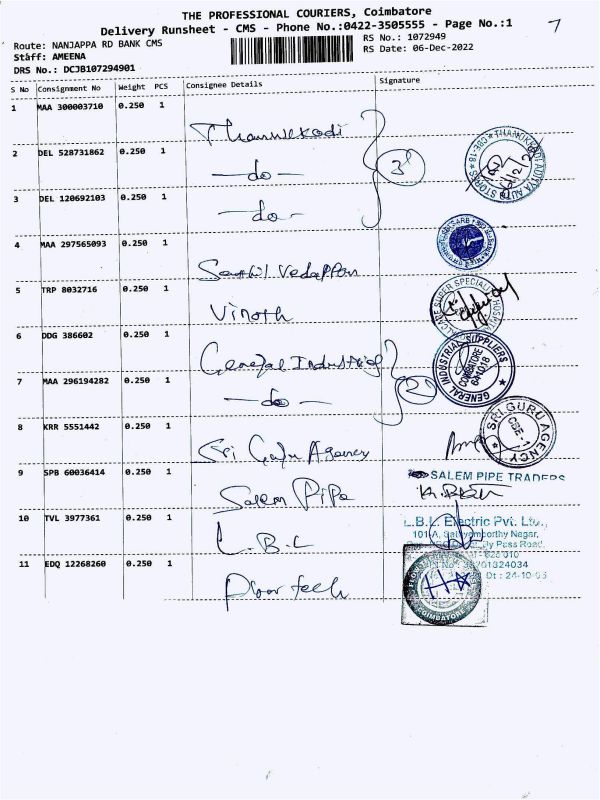 THE PROFESSIONAL COURIERS, Coimbatore
Delivery Runsheet - CMS - Phone No.:0422-3505555 - Page No.:1
7
Route: NANJAPPA RD BANK CMS
RS No.: 1072949
Staff: AMEENA
RS Date: 06-Dec-2022
DRS No.: DCJB107294901
S No Consignment No Weight PCS Consignee Details Signature
1 MAA 300003710 0.250 1
2 DEL 528731862 0.250 1 -do-
3 DEL 120692103 0.250 1 -do-
4 MAA 297565093 0.250 1
5 TRP 8032716 0.250 1 Vinoth
6 DDG 386602 0.250 1 General Industrial
GENERAL INDUSTRIAL SUPPLIERS
COIMBATORE
641018
7 MAA 296194282 0.250 1 -do- 2
8 KRR 5551442 0.250 1 Sri Guru Agency
SRI GURU AGENCY
CBE - 1
9 SPB 60036414 0.250 1 Salem Pipe
SALEM PIPE TRADERS
10 TVL 3977361 0.250 1 L.B.L
L.B.L. Electric Pvt. Ltd.,
11 EDQ 12268260 0.250 1 Floor tech
COIMBATORE
Dt : 24-10-05